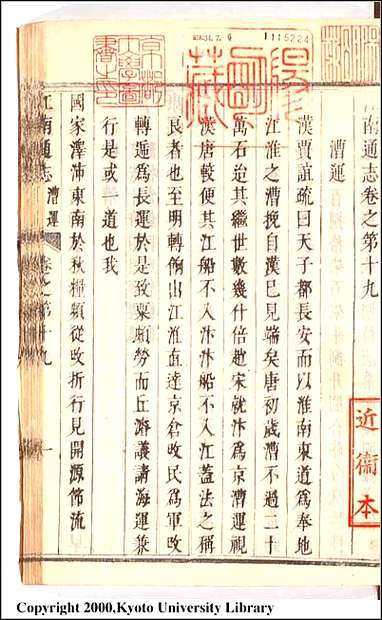 江南通志卷之第十九
漕運
漢賈誼疏曰天子都長安而以淮南東道為奉地
江淮之漕挽自漢已見端矣唐初歲漕不過二十
萬石迨其繼世數幾什倍趙宋就汴為京漕運視
漢唐較便其江船不入汴汴船不入江蓋法之稱
良者也至明轉餉出江淮直達京倉改民為軍改
轉逓為長運於是致粟頗勞而丘濬議請海運兼
行是或一道也我
國家澤沛東南於秋糧頻從改折行見開源節流
江南通志 漕運 卷之第十九 一
近衞本
京都大學圖書之印
1115224
Copyright 2000,Kyoto University Library